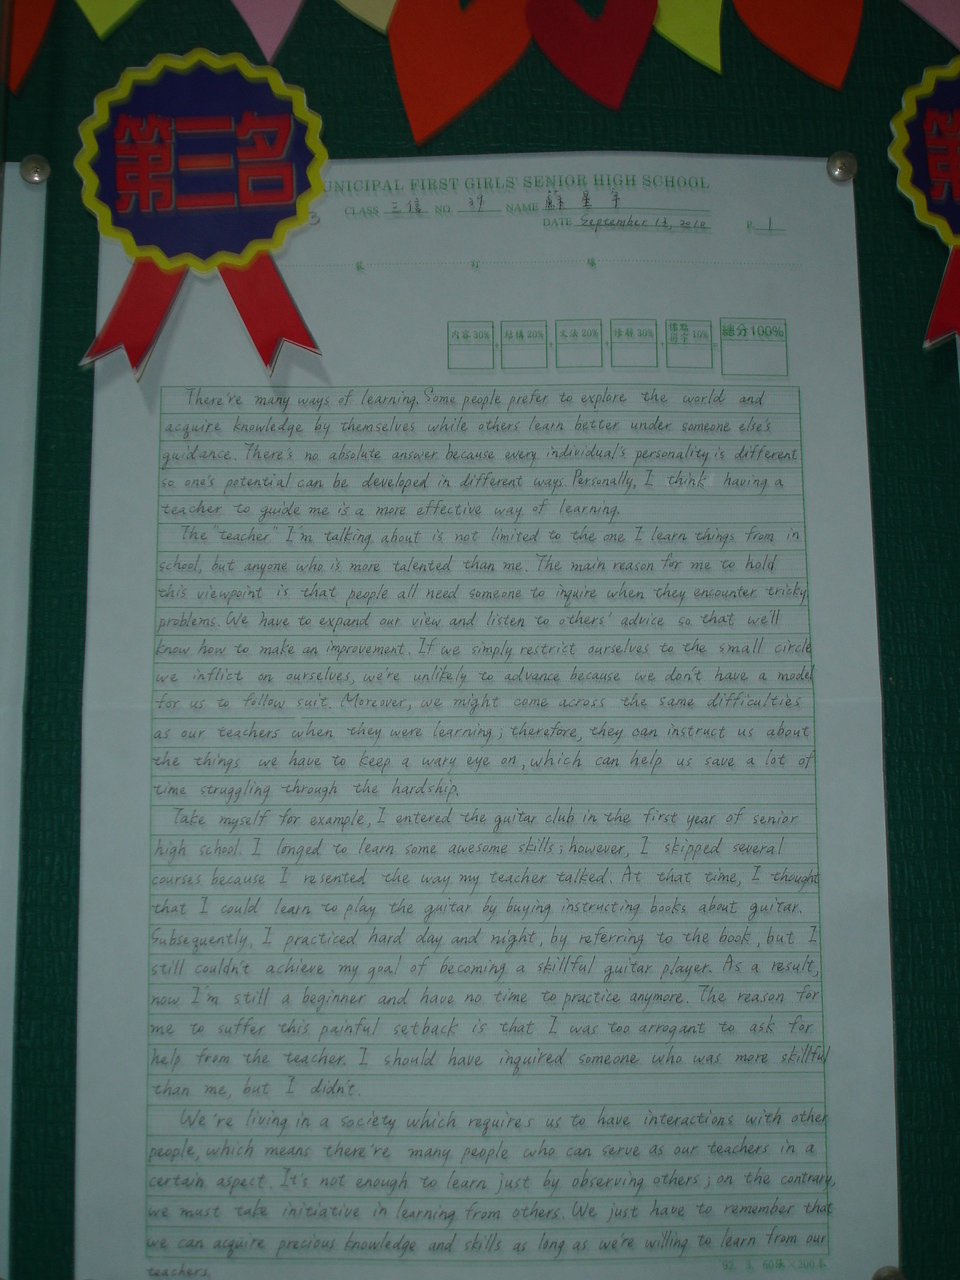 第三名
第
UNICIPAL FIRST GIRLS' SENIOR HIGH SCHOOL
3 CLASS 三信 NO. 39 NAME 蘇
DATE September 13, 2010 P. 1
內容30% 結構20% 文法20% 修辭30% 標點拼字10% 總分100%
There're many ways of learning. Some people prefer to explore the world and
acquire knowledge by themselves while others learn better under someone else's
guidance. There's no absolute answer because every individual's personality is different
so one's potential can be developed in different ways. Personally, I think having a
teacher to guide me is a more effective way of learning.
The "teacher" I'm talking about is not limited to the one I learn things from in
school, but anyone who is more talented than me. The main reason for me to hold
this viewpoint is that people all need someone to inquire when they encounter tricky
problems. We have to expand our view and listen to others' advice so that we'll
know how to make an improvement. If we simply restrict ourselves to the small circle
we inflict on ourselves, we're unlikely to advance because we don't have a model
for us to follow suit. Moreover, we might come across the same difficulties
as our teachers when they were learning; therefore, they can instruct us about
the things we have to keep a wary eye on, which can help us save a lot of
time struggling through the hardship.
Take myself for example, I entered the guitar club in the first year of senior
high school. I longed to learn some awesome skills; however, I skipped several
courses because I resented the way my teacher talked. At that time, I thought
that I could learn to play the guitar by buying instructing books about guitar.
Subsequently, I practiced hard day and night, by referring to the book, but I
still couldn't achieve my goal of becoming a skillful guitar player. As a result,
now I'm still a beginner and have no time to practice anymore. The reason for
me to suffer this painful setback is that I was too arrogant to ask for
help from the teacher. I should have inquired someone who was more skillful
than me, but I didn't.
We're living in a society which requires us to have interactions with other
people, which means there're many people who can serve as our teachers in a
certain aspect. It's not enough to learn just by observing others; on the contrary,
we must take initiative in learning from others. We just have to remember that
we can acquire precious knowledge and skills as long as we're willing to learn from our
teachers.